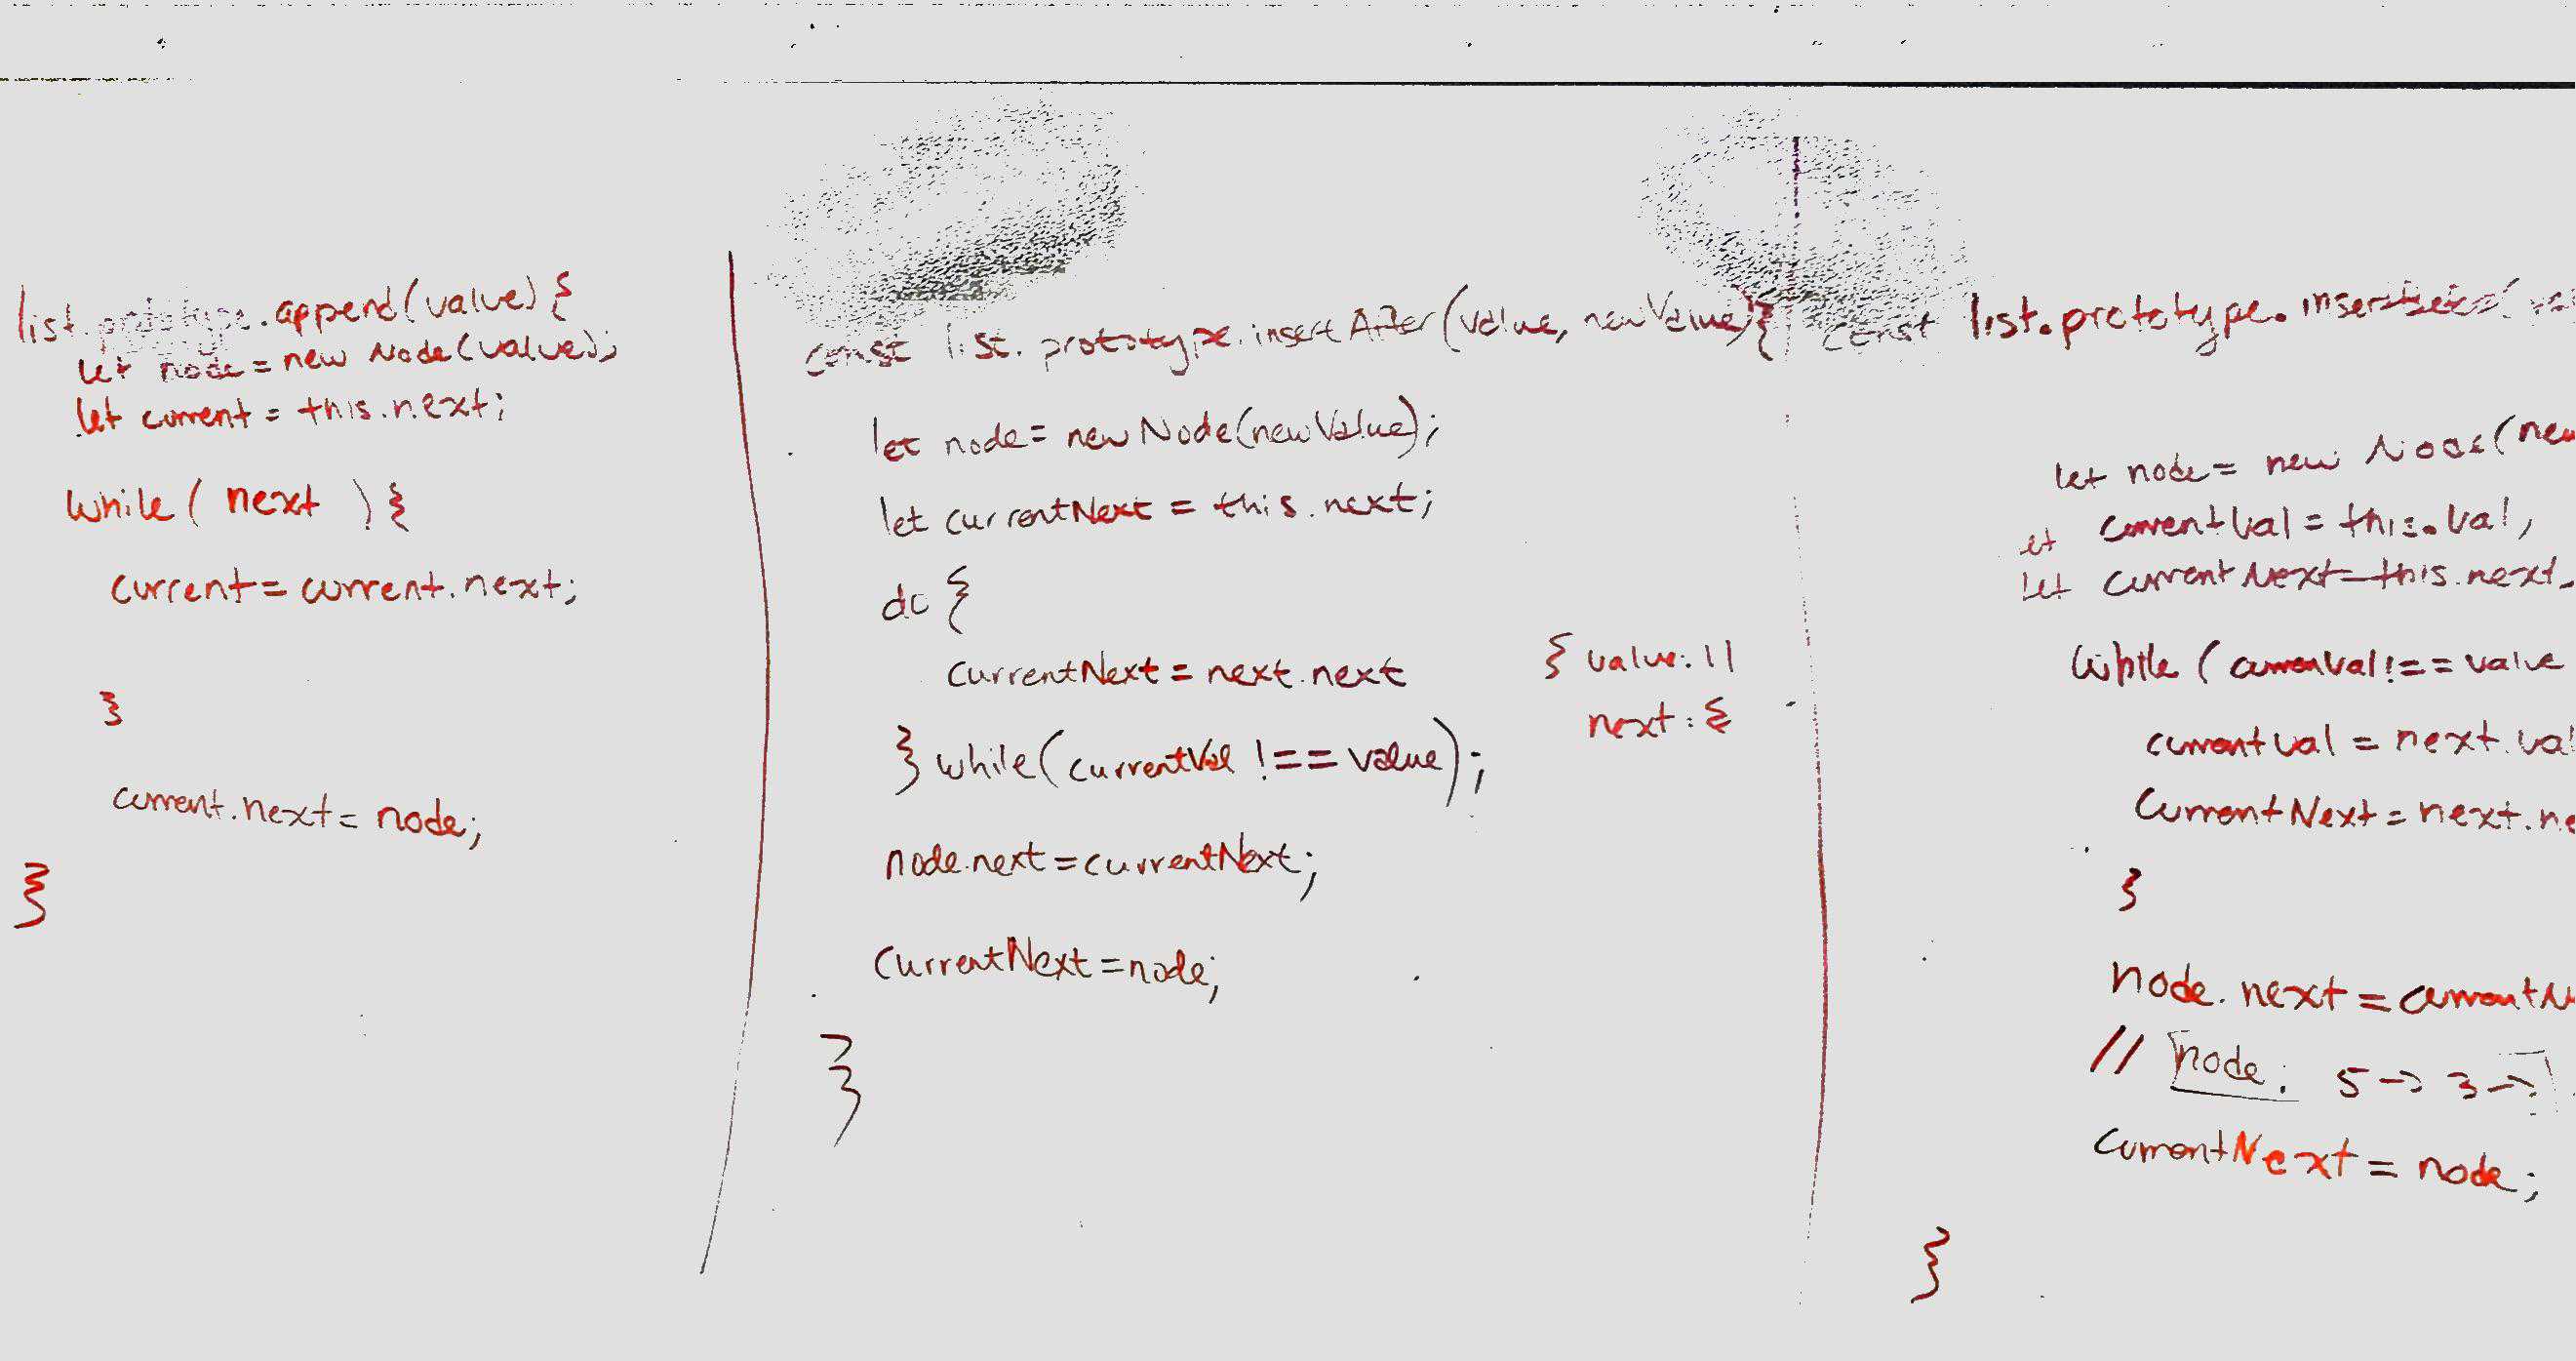 list.prototype.append(value){
let node = new Node(value);
let current = this.next;
while( next ){
current = current.next;
}
current.next = node;
}
const list.prototype.insertAfter(value, newValue){
let node = new Node(newValue);
let currentNext = this.next;
do {
currentNext = next.next
} while(currentVal !== value);
node.next = currentNext;
currentNext = node;
}
{ value: 11
next: {
const list.prototype.
let node = new Node(new
let currentVal = this.val,
let currentNext = this.next,
while ( currentVal !== value
currentVal = next.val
currentNext = next.ne
}
node.next = currentN
// node: 5 -> 3 ->
currentNext = node;
}